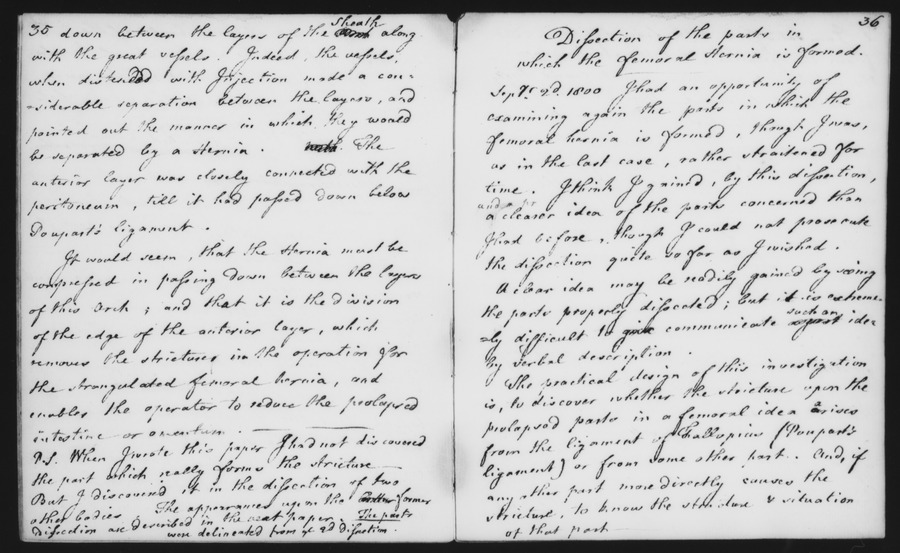 35 down between the layers of the sheath along
with the great vessels. Indeed, the vessels,
when distended with Injection made a con-
-siderable separation between the layers, and
pointed out the manner in which they would
be separated by a Hernia. The
anterior layer was closely connected with the
peritoneum, till it had passed down below
Poupart's ligament.
It would seem, that the Hernia must be
compressed in passing down between the layers
of this Arch; and that it is the division
of the edge of the anterior layer, which
removes the stricture in the operation for
the strangulated femoral hernia, and
enables the operator to reduce the prolapsed
intestine or omentum.
P.S. When I wrote this paper I had not discovered
the part which really forms the stricture
But I discovered it in the dissection of two
other bodies. The appearances upon the former
Dissection are described in the next paper. The parts
were delineated from ye 2d dissection.
36
Dissection of the parts in
which the femoral Hernia is formed.
Septr. 2d. 1800 I had an opportunity of
examining again the parts in which the
femoral hernia is formed, though I was,
as in the last case, rather straitened for
time. I think I gained, by this dissection,
a clearer idea of the parts concerned than
I had before, though I could not prosecute
the dissection quite so far as I wished.
A clear idea may be readily gained by seeing
the parts properly dissected; but it is extreme-
-ly difficult to communicate such an idea
by verbal description.
The practical design of this investigation
is, to discover whether the stricture upon the
prolapsed parts in a femoral idea arises
from the ligament of Fallopius (Poupart's
ligament) or from some other part. And, if
any other part more directly causes the
stricture, to know the structure & situation
of that part